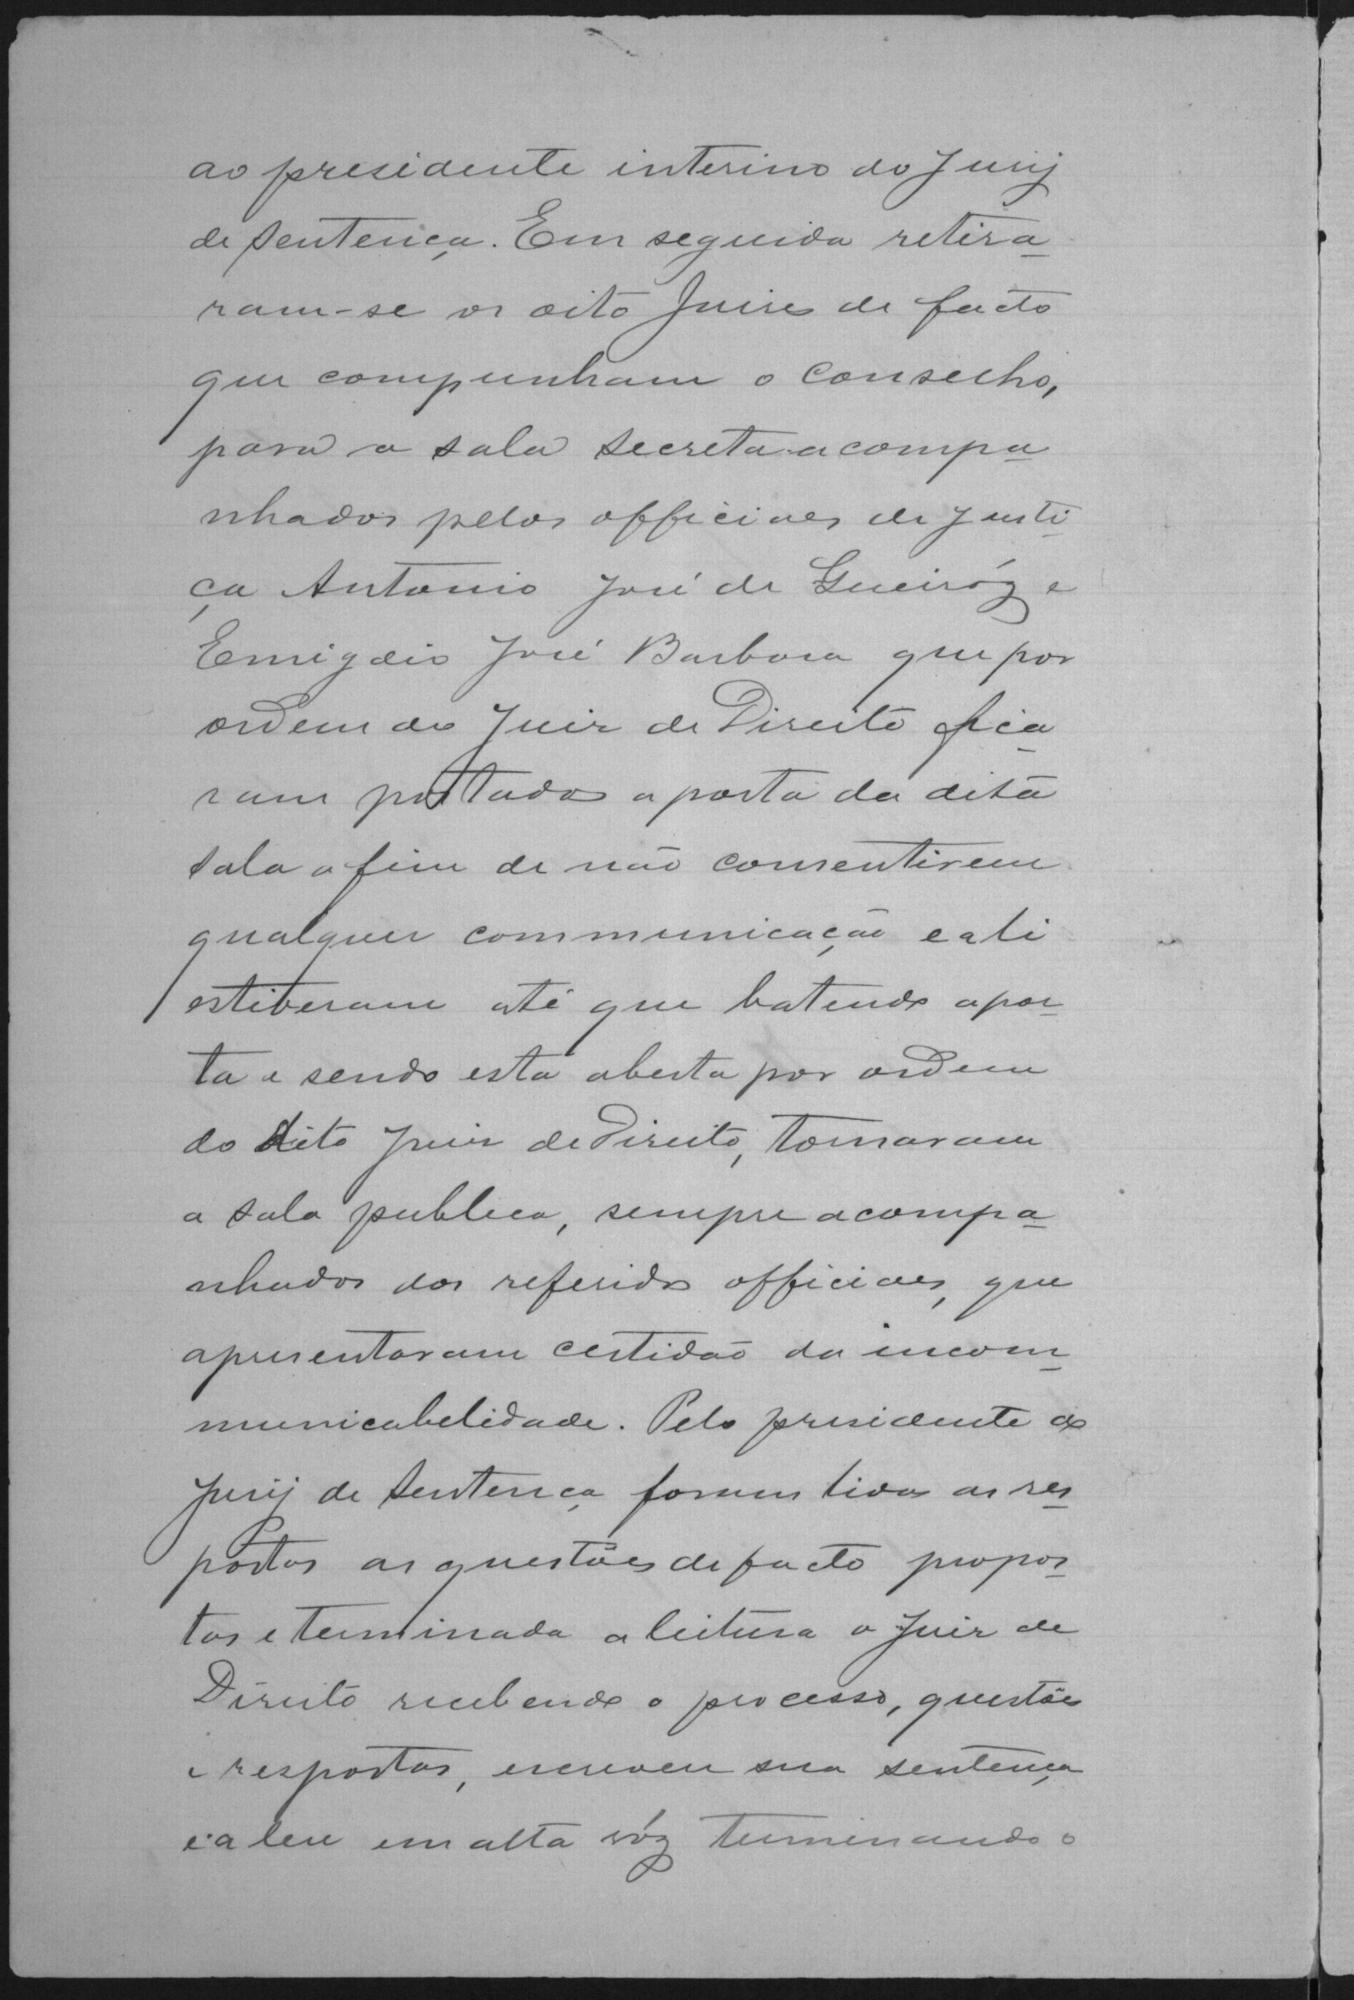 ao presidente interino do Jury
de sentença. Em seguida retira
ram-se os oito Juises de facto
que compunham o Conselho,
para a sala secreta acompa
nhados pelos officiaes de Justi
ça Antonio José de Gueiróz e
Emigdio José Barbosa que por
ordem do Juiz de Direito fica
ram postados a porta da dita
sala a fim de não consentirem
qualquer communicação e ali
estiveram até que batendo a por
ta e sendo esta aberta por ordem
do dito Juiz de Direito, tornaram
a sala publica, sempre acompa
nhados dos referidos officiaes, que
apresentaram certidão da incom
municabelidade. Pelo presidente do
Jury de Sentença foram lidas as res
postas as questões de facto propos
tas e terminada a leitura o Juiz de
Direito recebendo o processo, questões
e respostas, escreveu sua sentença
e a leu em alta vóz terminando o